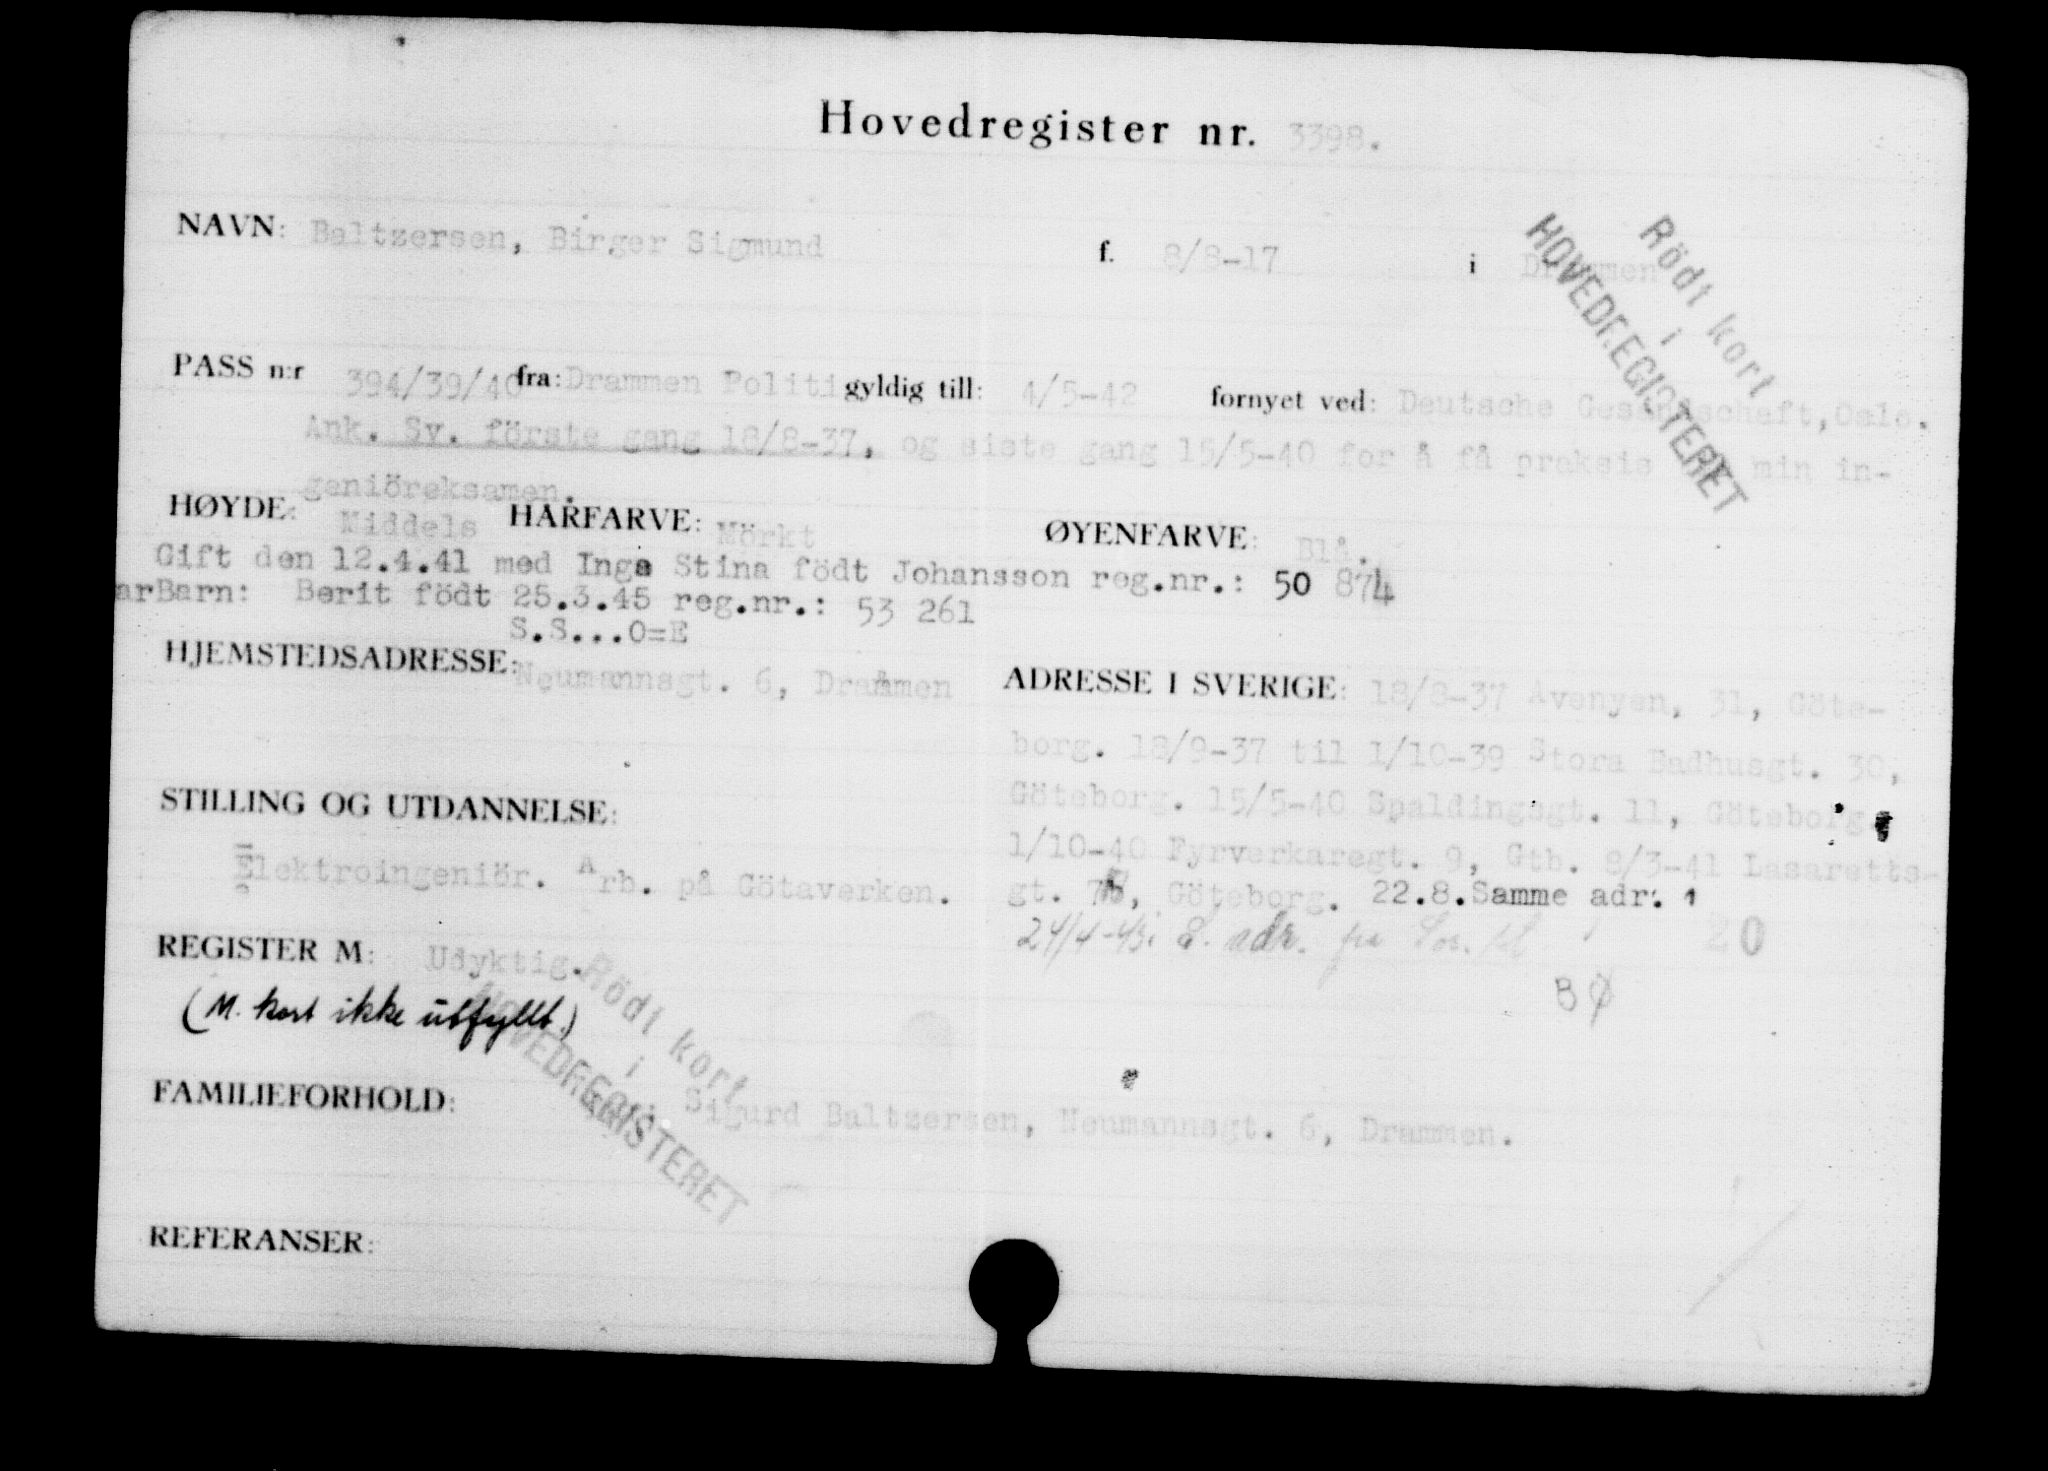 Hovedregister nr. 3398.
NAVN: Baltzersen, Birger Sigmund f. 8/8-17 i Drammen
Rödt kort
i
HOVEDREGISTERET
PASS n:r 394/39/40 fra: Drammen Politi gyldig till: 4/5-42 fornyet ved: Deutsche Gesandschaft, Oslo.
Ank. Sv. förste gang 18/8-37, og siste gang 15/5-40 for å få praksis min in-
geniöreksamen.
HØYDE: Middels HÅRFARVE: Mörkt ØYENFARVE: Blå.
Gift den 12.4.41 med Inga Stina födt Johansson reg.nr.: 50 874
arBarn: Berit födt 25.3.45 reg.nr.: 53 261
S.S...O=E
HJEMSTEDSADRESSE: Neumannsgt. 6, Drammen
ADRESSE I SVERIGE: 18/8-37 Avenyen, 31, Göte-
borg. 18/9-37 til 1/10-39 Stora Badhusgt. 30,
Göteborg. 15/5-40 Spaldingsgt. 11, Göteborg.
1/10-40 Fyrverkaregt. 9, Gtb. 8/3-41 Lasaretts-
gt. Göteborg. 22.8. Samme adr.
24/4-43. S. adr.
20
BØ
STILLING OG UTDANNELSE:
Elektroingeniör. Arb. på Götaverken.
REGISTER M: Udyktig.
(M. kort ikke utfyllt.)
Rödt kort
i
HOVEDREGISTERET
FAMILIEFORHOLD: Sigurd Baltzersen, Neumannsgt. 6, Drammen.
REFERANSER: